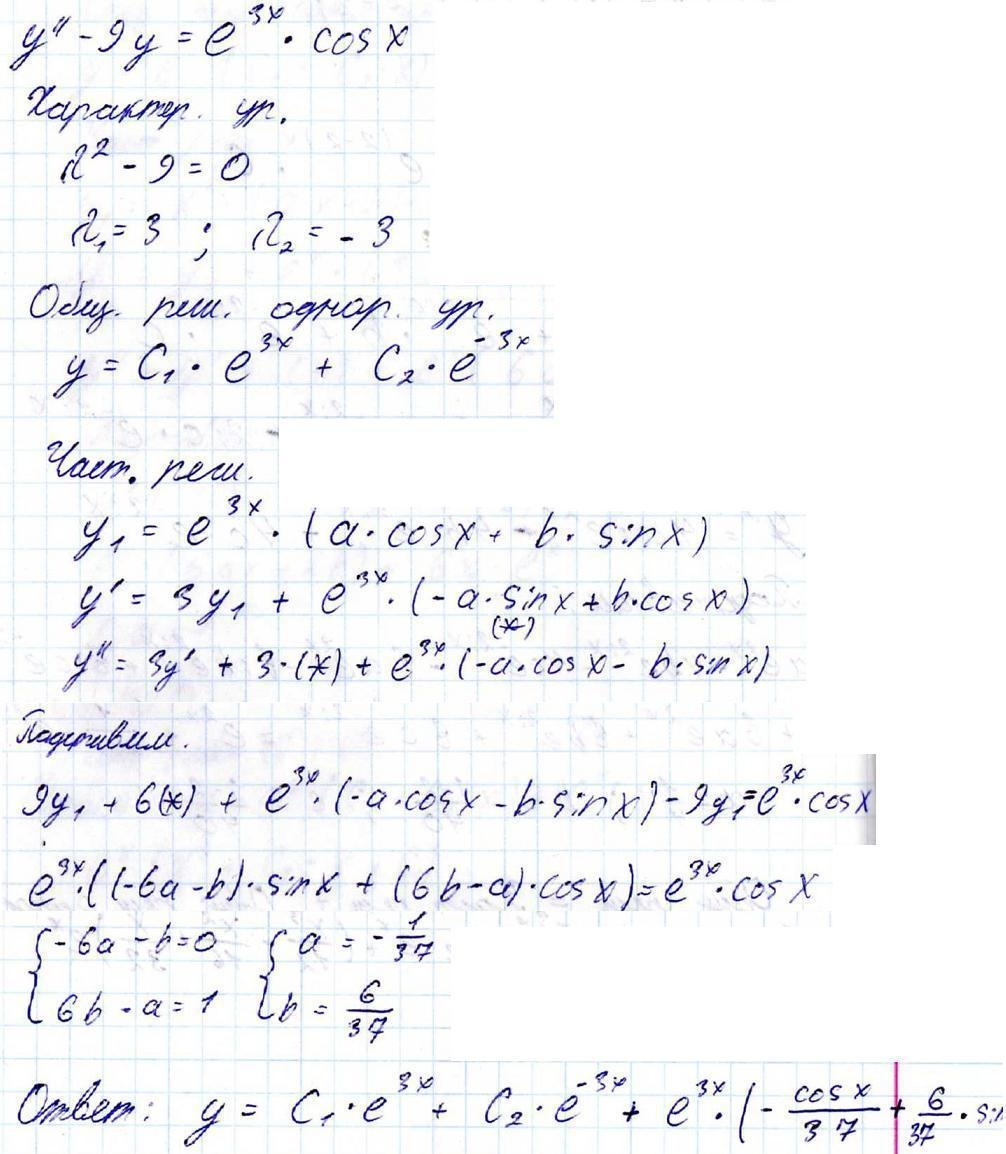 y'' - 9y = e^{3x} · cos x
Характер. ур.
λ² - 9 = 0
λ₁ = 3 ; λ₂ = - 3
Общ. реш. однор. ур.
y = C₁ · e^{3x} + C₂ · e^{-3x}
Част. реш.
y₁ = e^{3x} · (a · cos x + b · sin x)
y' = 3y₁ + e^{3x} · (-a · sin x + b · cos x)
(*)
y'' = 3y' + 3 · (*) + e^{3x} · (-a · cos x - b · sin x)
Подставим.
9y₁ + 6(*) + e^{3x} · (-a · cos x - b · sin x) - 9y₁ = e^{3x} · cos x
e^{3x} · ((-6a - b) · sin x + (6b - a) · cos x) = e^{3x} · cos x
{ -6a - b = 0 { a = - 1/37
6b - a = 1 b = 6/37
Ответ: y = C₁ · e^{3x} + C₂ · e^{-3x} + e^{3x} · (- cos x/37 + 6/37 · sin